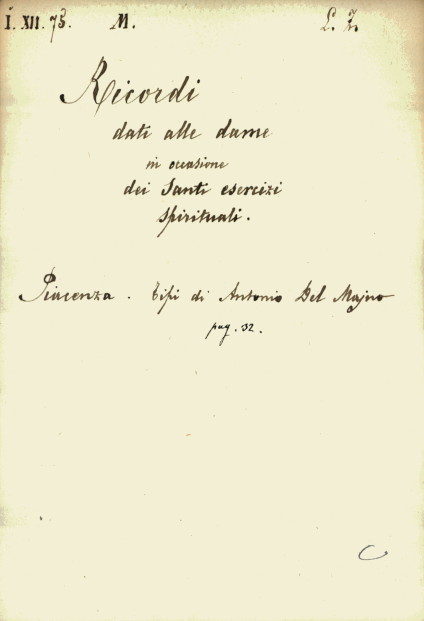 I. XII. 75. M. L. Z.
Ricordi
dati alle dame
in occasione
dei Santi esercizi
spirituali.
Piacenza. Tipi di Antonio Del Majno
pag. 32.
C